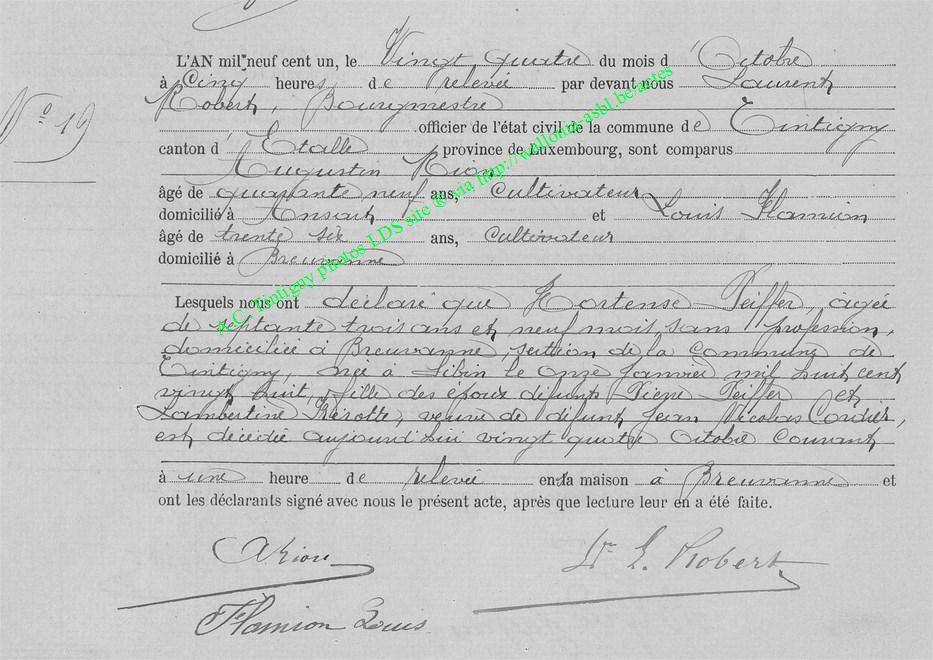 N° 19
L'AN mil neuf cent un, le Vingt quatre du mois d'Octobre
à Cinq heures de relevée par devant nous Laurent
Robert, Bourgmestre
officier de l'état civil de la commune de Tintigny
canton d'Etalle province de Luxembourg, sont comparus
Augustin Rion
âgé de quarante neuf ans, Cultivateur
domicilié à Ansart et Louis Flamion
âgé de trente six ans, Cultivateur
domicilié à Breuvanne
Lesquels nous ont déclaré que Hortense Peiffer, agée
de septante trois ans et neuf mois, sans profession,
domiciliée à Breuvanne, section de la commune de
Tintigny, née à Libin le onze Janvier mil huit cent
vingt huit, fille des époux défunts Pierre Peiffer et
Lambertine Pierotte, veuve de défunt Jean Nicolas Cordier,
est décédée aujourd'hui vingt quatre Octobre courant
à une heure de relevée en sa maison à Breuvanne et
ont les déclarants signé avec nous le présent acte, après que lecture leur en a été faite.
A Rion
Dr L. Robert
Flamion Louis
A.C. Tintigny photos LDS site ® via http://wallonia-asbl.be/actes